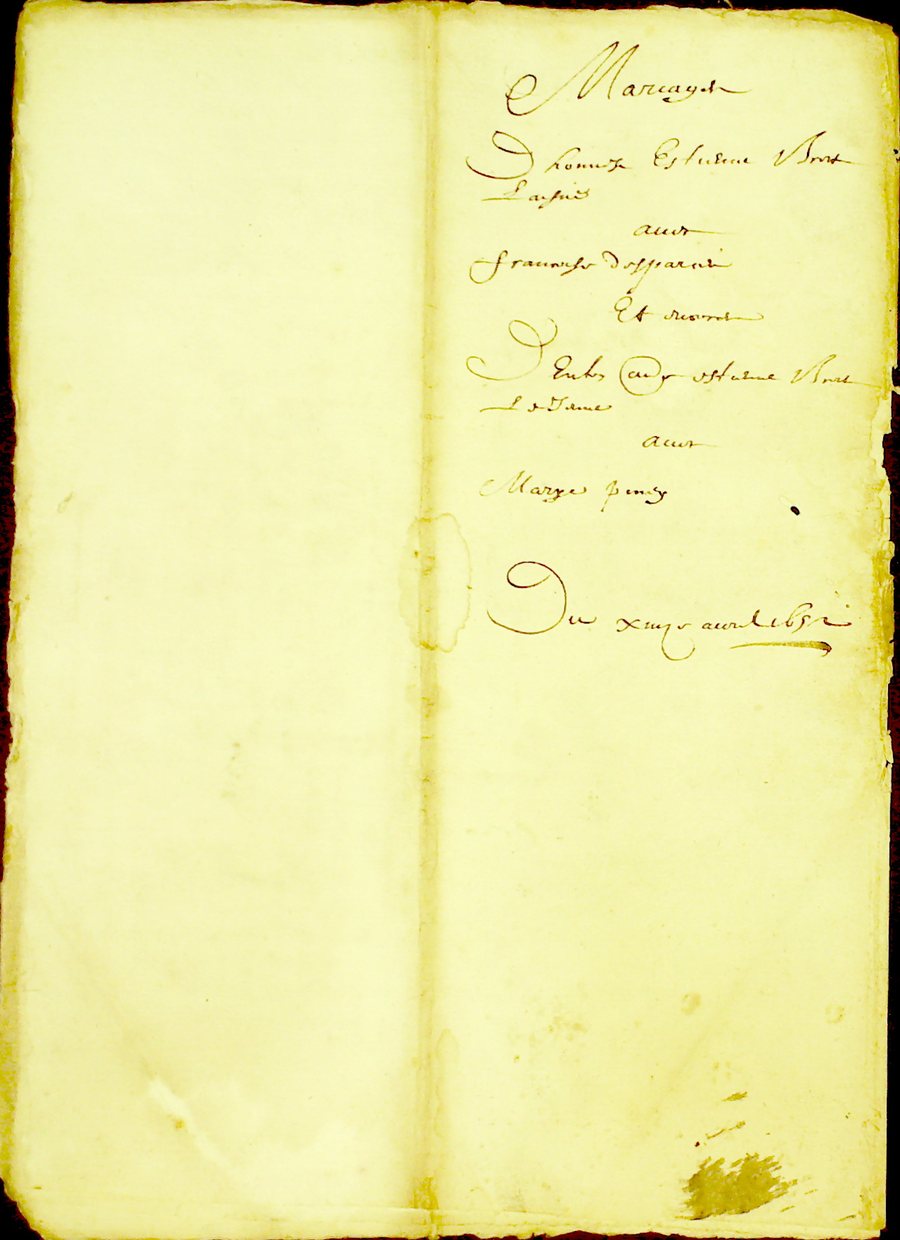 Mariages
D honneste Estienne Brot
Laisne
avec
francoise desparcin
Et encores
D Entre estienne Brot
Le Jeune
avec
Marye
Du xiiije avril 1652